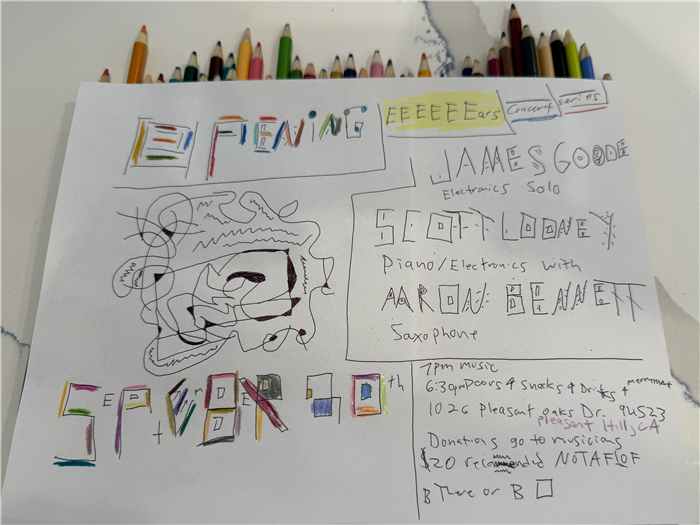 EEEEEEArs Concert series
JAMES GOODE
Electronics Solo
SCOTT LOONEY
Piano/Electronics with
AARON BENNETT
Saxophone
SEPtEmBER
7pm music
6:30pm Doors & Snacks & Drinks & merriment
1026 Pleasant oaks Dr. 94523
pleasant Hill, CA
Donations go to musicians
$20 recommended NOTAFLOF
B There or B